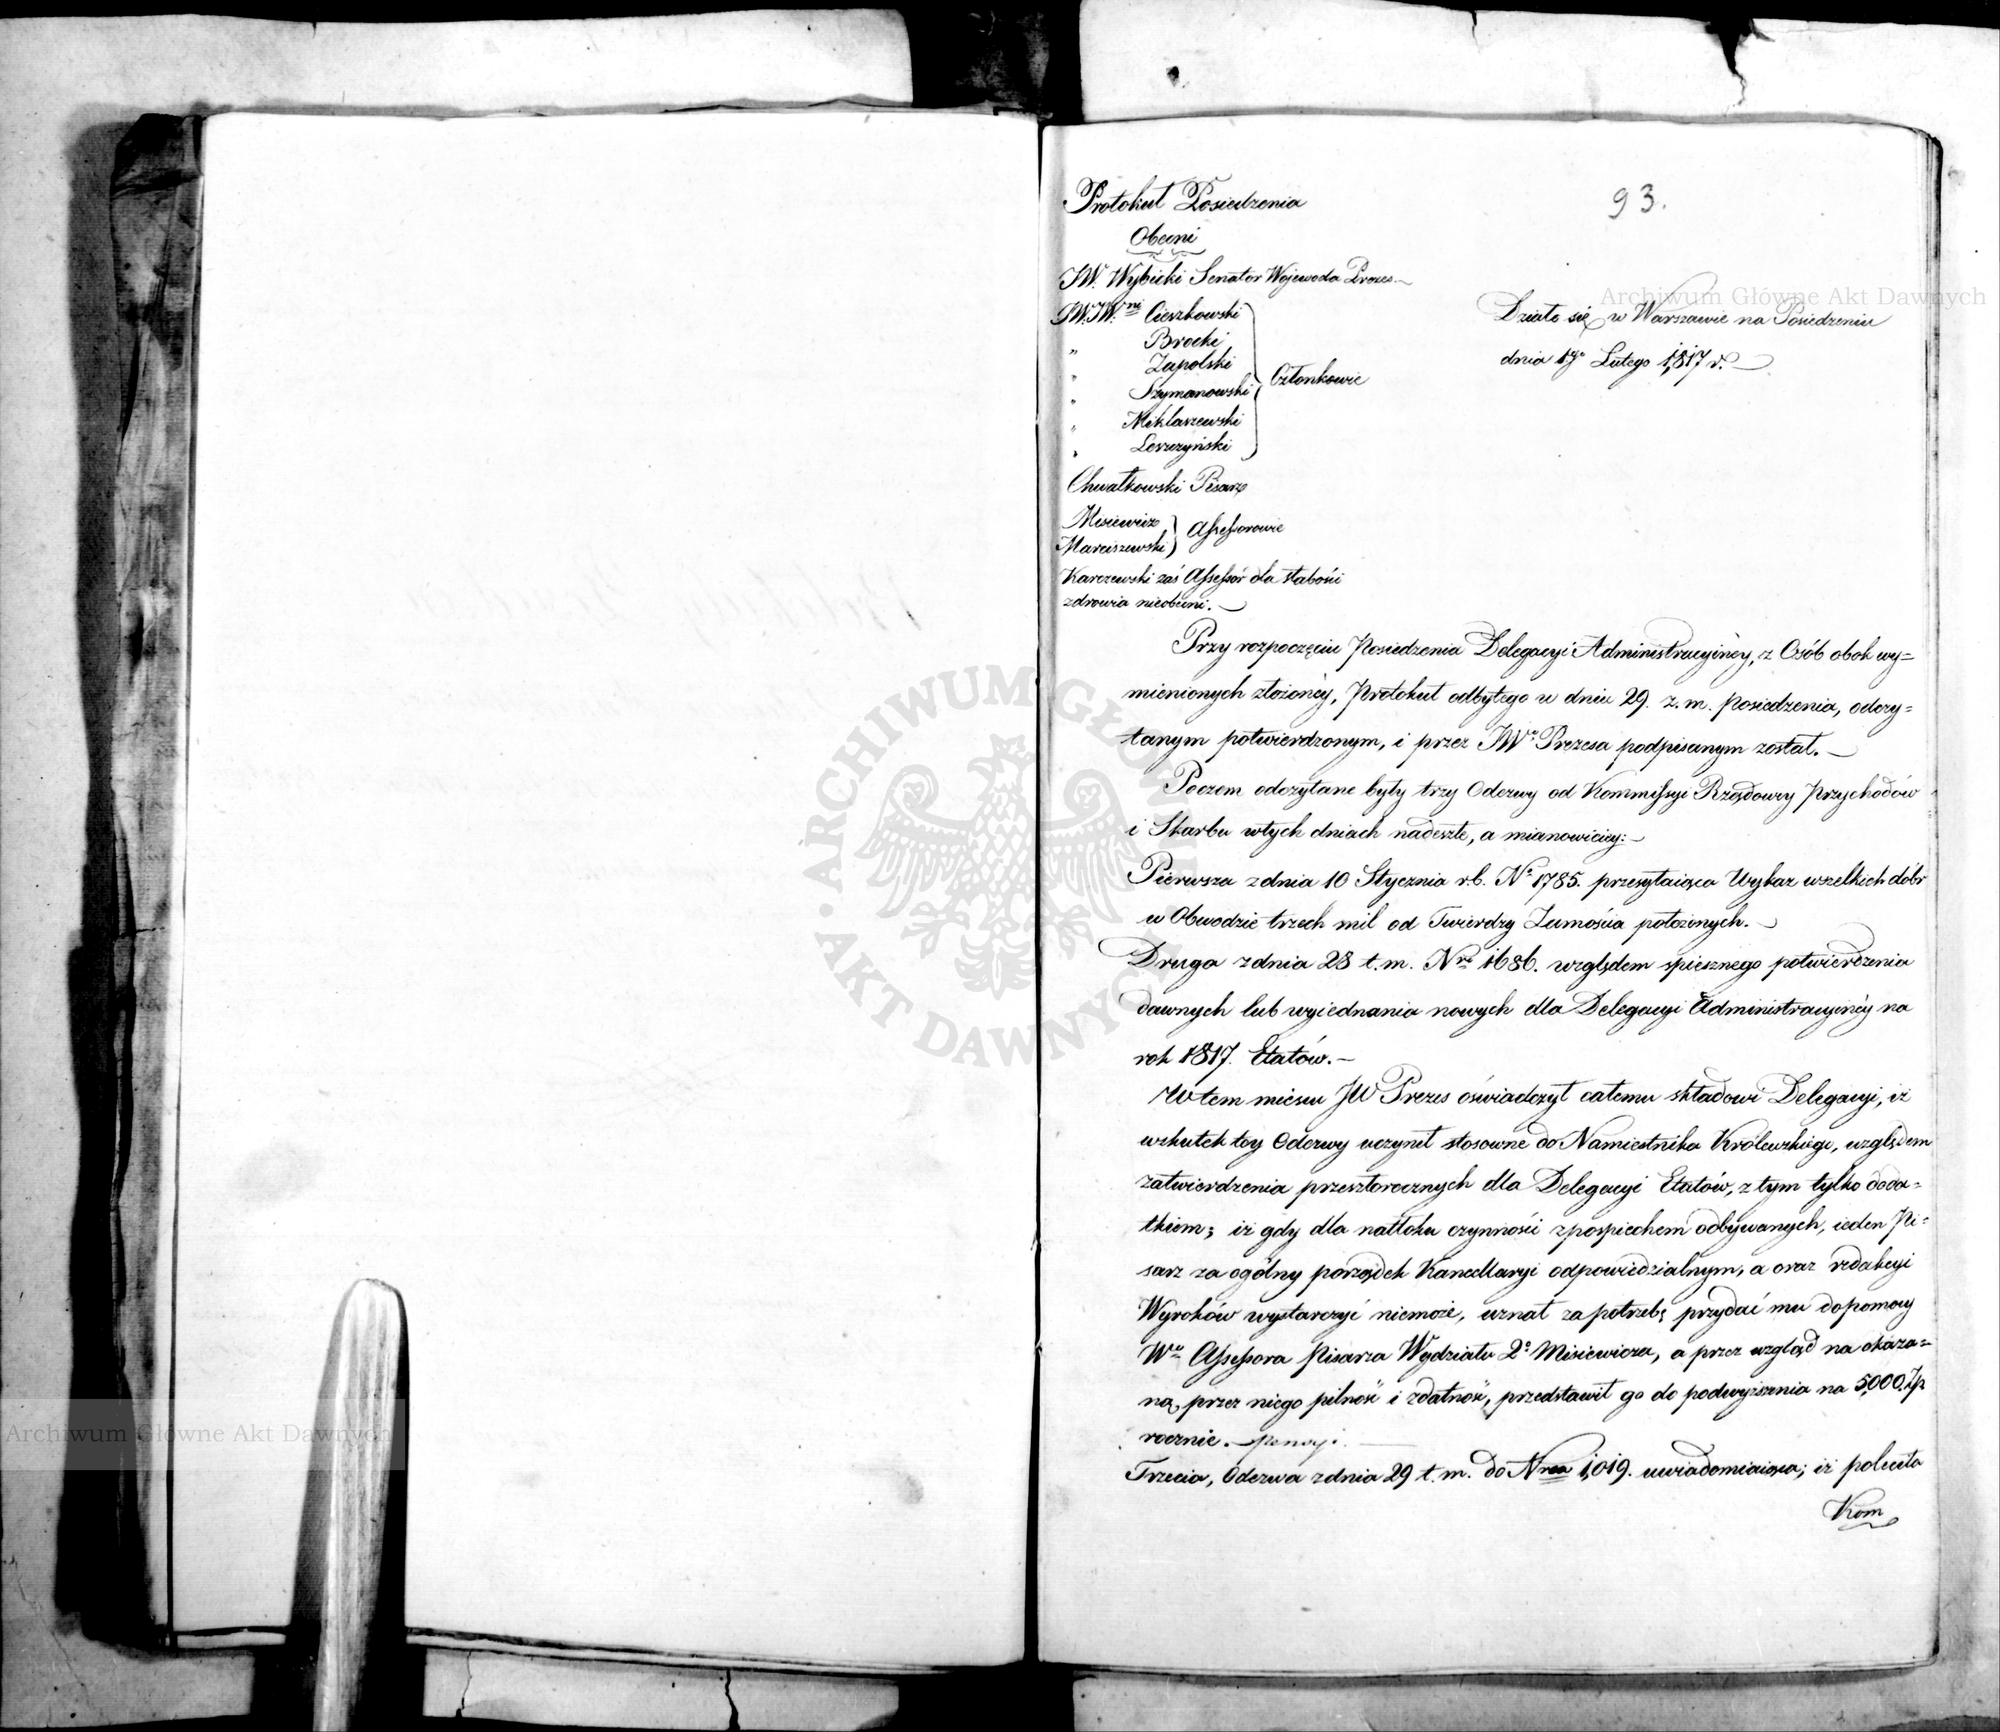 93.
Protokuł Posiedzenia
Obecni
JW. Wybicki Senator Wojewoda Prezes.
JW.JW.ni Cieszkowski
" Brocki
" Zapolski
" Szymanowski
" Miklaszewski
" Leszczyński
Członkowie
Chwałkowski Pisarz
Misiewicz
Marciszewski
Assessorowie
Karczewski zaś Assessor dla słabości
zdrowia nieobecni.
Działo się w Warszawie na Posiedzeniu
dnia 1go Lutego 1817 r.
Przy rozpoczęciu Posiedzenia Delegacyi Administracyinéy, z Osób obok wy=
mienionych złożonéy, Protokuł odbytego w dniu 29. z. m. posiedzenia, odczy=
tanym potwierdzonym, i przez JWo Prezesa podpisanym został.
Poczem odczytane były trzy Odezwy od Kommissyi Rządowey Przychodów
i Skarbu wtych dniach nadeszłe, a mianowiciey:
Pierwsza zdnia 10 Stycznia r.b. No 1785. przesyłaiąca Wykaz wszelkich dóbr
w Obwodzie trzech mil od Twierdzy Zamościa położonych.
Druga zdnia 28 t.m. Nro 1686. względem spiesznego potwierdzenia
dawnych lub wyiednania nowych dla Delegacyi Administracyinéy na
rok 1817. Etatów.
W tem miescu JW Prezes óświadczył całemu składowi Delegacyi, iż
wskutek tey Odezwy uczynił stosowne do Namiestnika Królewskiego, względem
zatwierdzenia przeszłorocznych dla Delegacyi Etatów, z tym tylko doda=
tkiem; iż gdy dla natłoku czynności zpospiechem odbywanych, ieden Pi=
sarz za ogólny porządek Kancellaryi odpowiedzialnym, a oraz redakcyi
Wyroków wystarczyć niemoże, uznał za potrzebę przydać mu dopomocy
Wo Assessora Pisarza Wydziału 2o Misiewicza, a przez wzgląd na okaza=
ną przez niego pilność i zdatność, przedstawił go do podwyższenia na 5,000. Zp
rocznie. pensyi.
Trzecia, Odezwa zdnia 29 t. m. do Nra 1,019. uwiadomiaiąca; iż poleciła
Kom
Archiwum Główne Akt Dawnych
Archiwum Główne Akt Dawnych
ARCHIWUM GŁÓWNE · AKT DAWNYCH